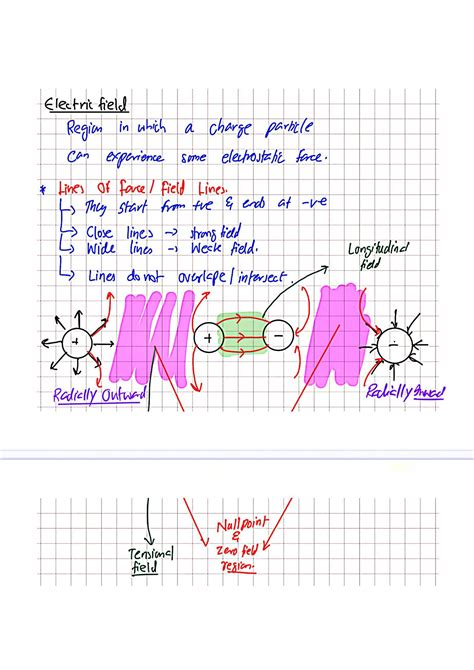 Electric field
Region in which a charge particle
can experience some electrostatic force.
* Lines Of force / field Lines.
They start from +ve & ends at -ve
Close lines → strong field
Wide lines → Weak field.
Lines do not overlape/intersect.
Longitudinal
field
+
+
-
-
Radially Outward
Radially Inward
Null point
&
zero field
region.
Tensional
field